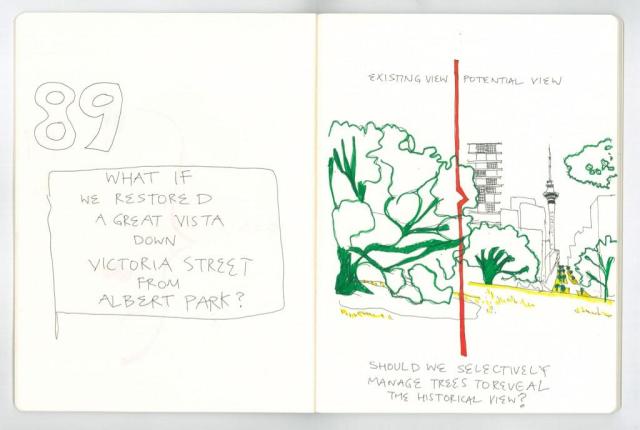 89
WHAT IF
WE RESTORED
A GREAT VISTA
DOWN
VICTORIA STREET
FROM
ALBERT PARK?
EXISTING VIEW POTENTIAL VIEW
SHOULD WE SELECTIVELY
MANAGE TREES TO REVEAL
THE HISTORICAL VIEW?